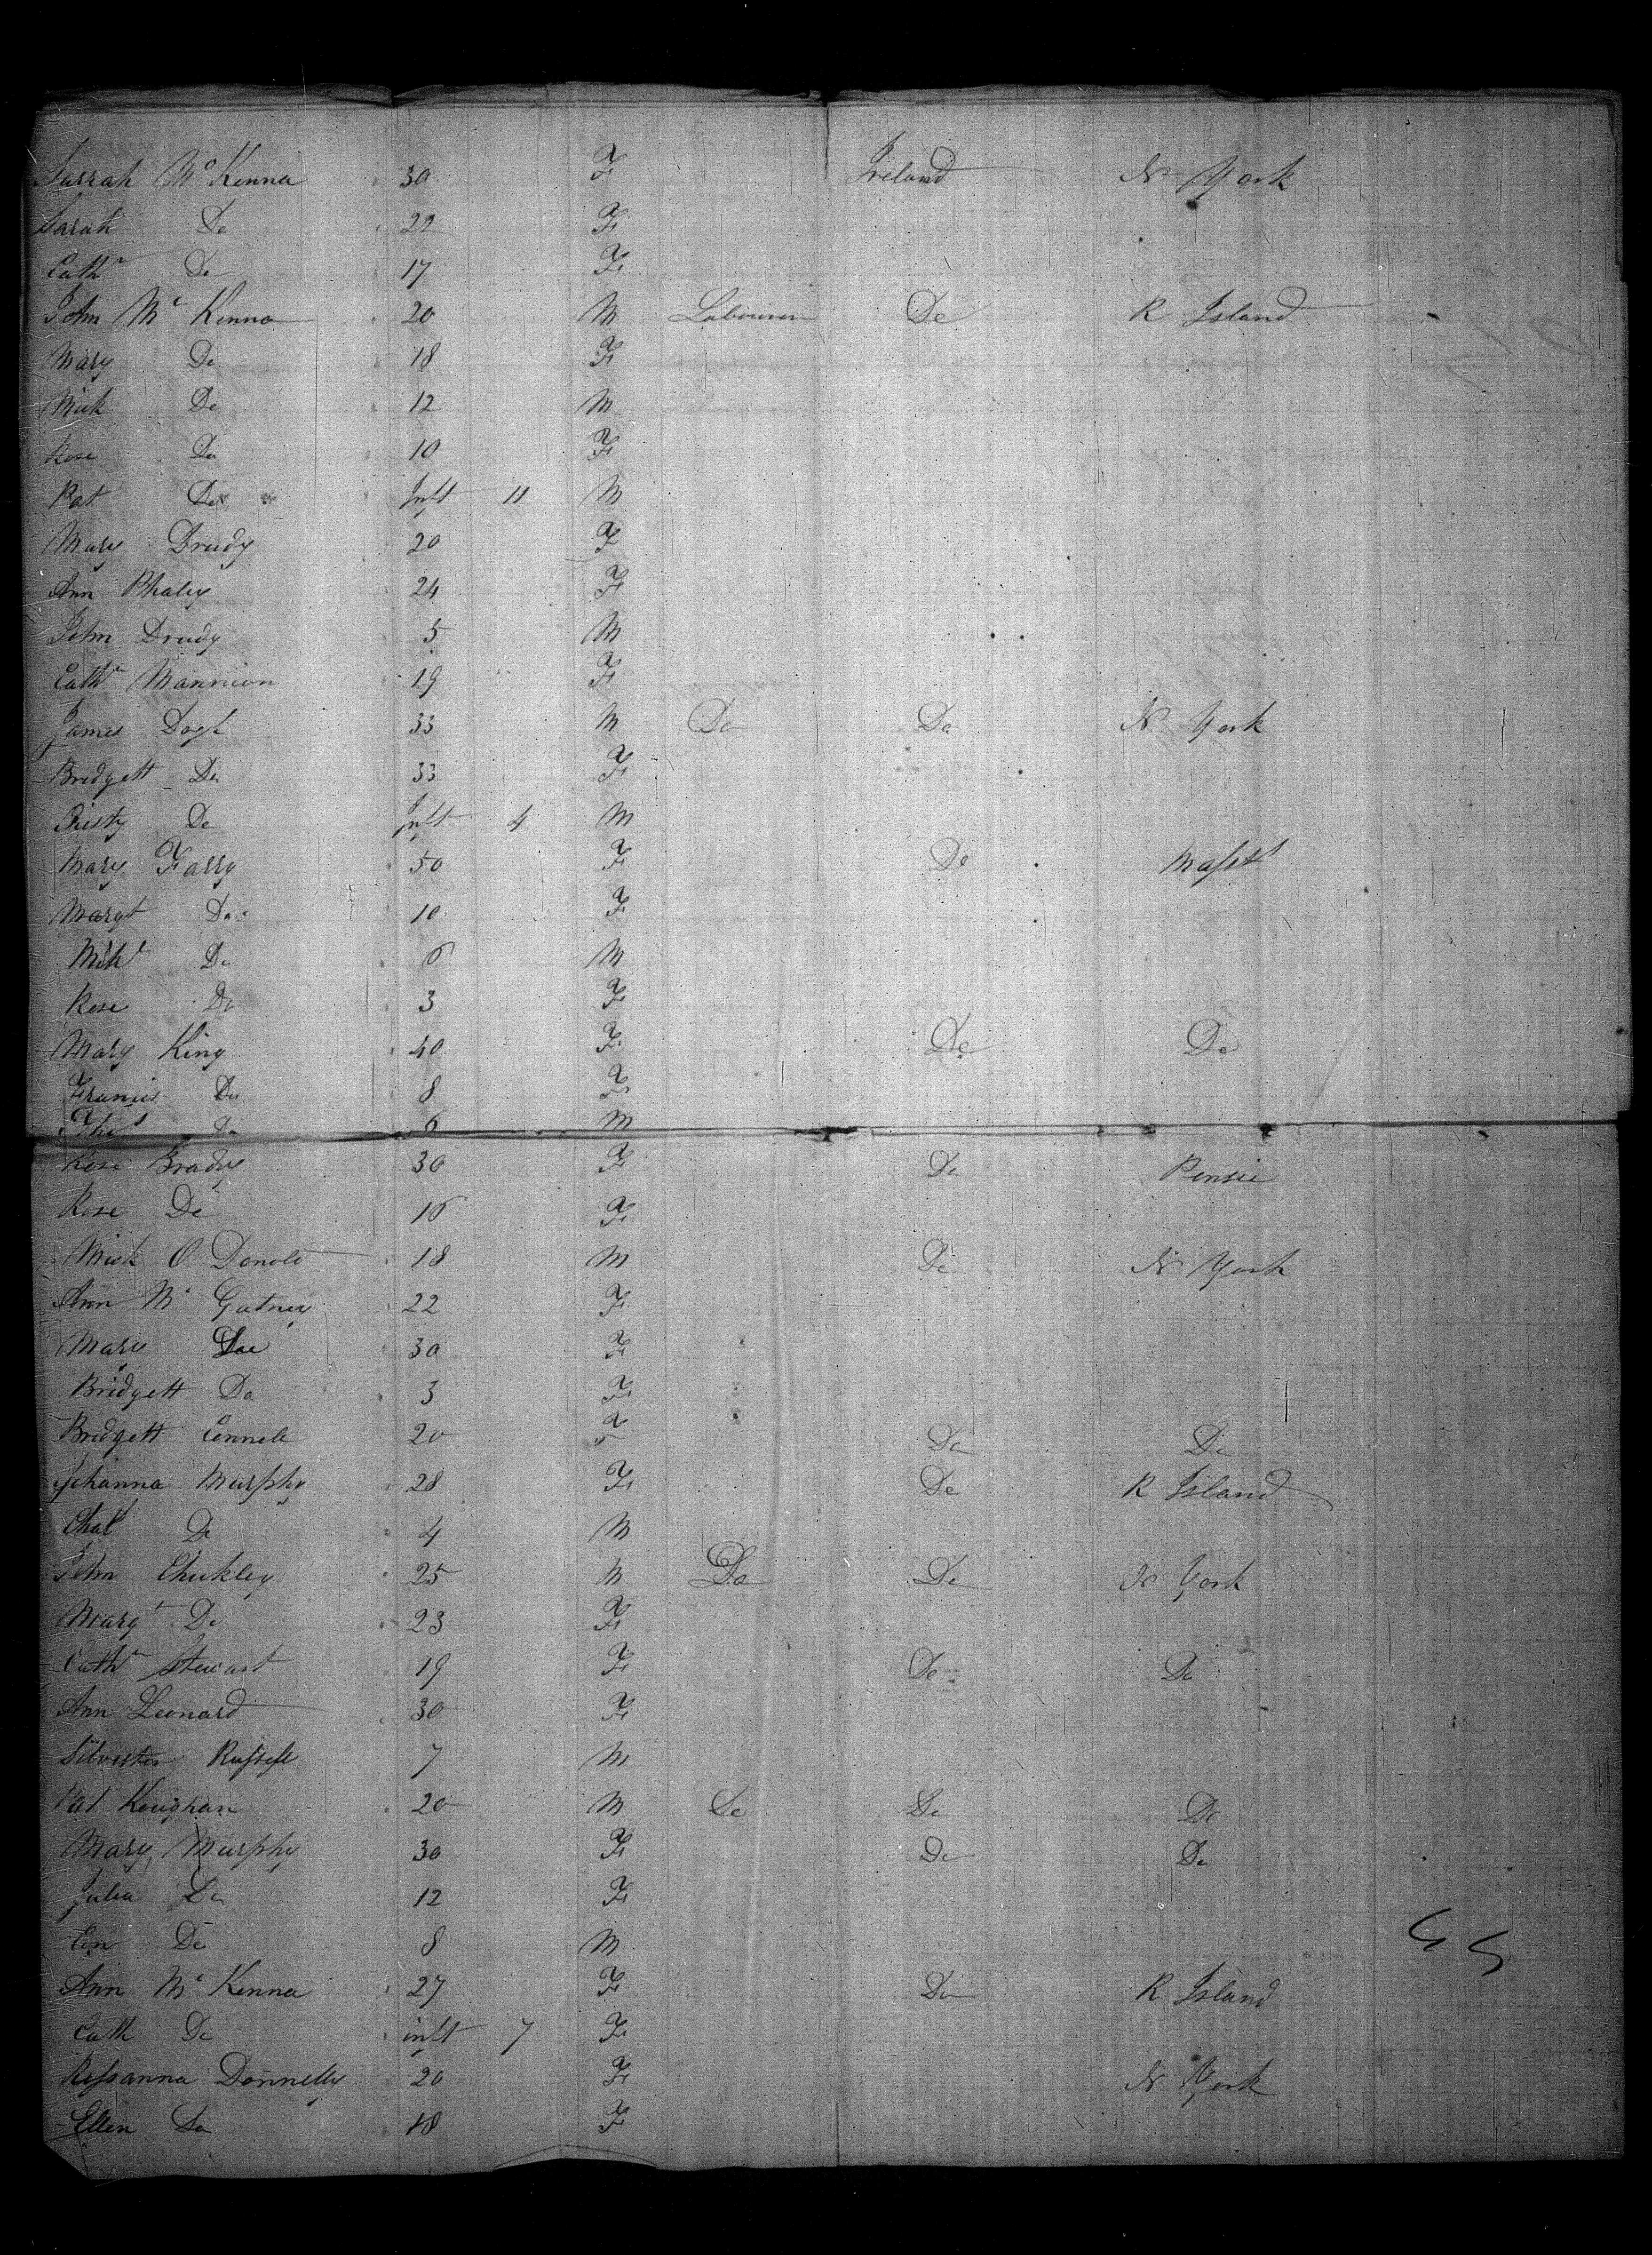 Sarrah McKenna 30 F Ireland N York
Sarah Do 22 F
Cathn Do 17 F
John Mc Kenna 20 M Labourer Do R Island
Mary Do 18 F
Mick Do 12 M
Rose Do 10 F
Pat Do Inft 11 M
Mary Drudy 20 F
Ann Phaley 24 F
John Drudy 5 M
Cathn Mannion 19 F
James 33 M Do Do N York
Bridgett Do 33 F
Do Inft 4 M
Mary Farry 50 F Do Masst
Margt Do 10 F
Mihl Do 6 M
Rose Do 3 F
Mary King 40 F Do Do
Francis Do 8 F
Thos Do 6 M
Rose Brady 30 F Do Pensie
Rose Do 16 F
Mick O Donold 18 M Do N York
Ann Mc Gutney 22 F
Mary Do 30 F
Bridgett Do 3 F
Bridgett Connell 20 F Do Do
Johanna Murphy 28 F Do R Island
Chas Do 4 M
John 25 M Do Do N York
Margt Do 23 F
Cathn Stewart 19 F Do Do
Ann Leonard 30 F
Silvester Russell 7 M
Pat Koughan 20 M Do Do Do
Mary Murphy 30 F Do Do
Julia Do 12 F
Do 8 M
Ann Mc Kenna 27 F Do R Island
Cath Do inft 7 F
Rossanna Donnelly 20 F N York
Ellen Do 18 F